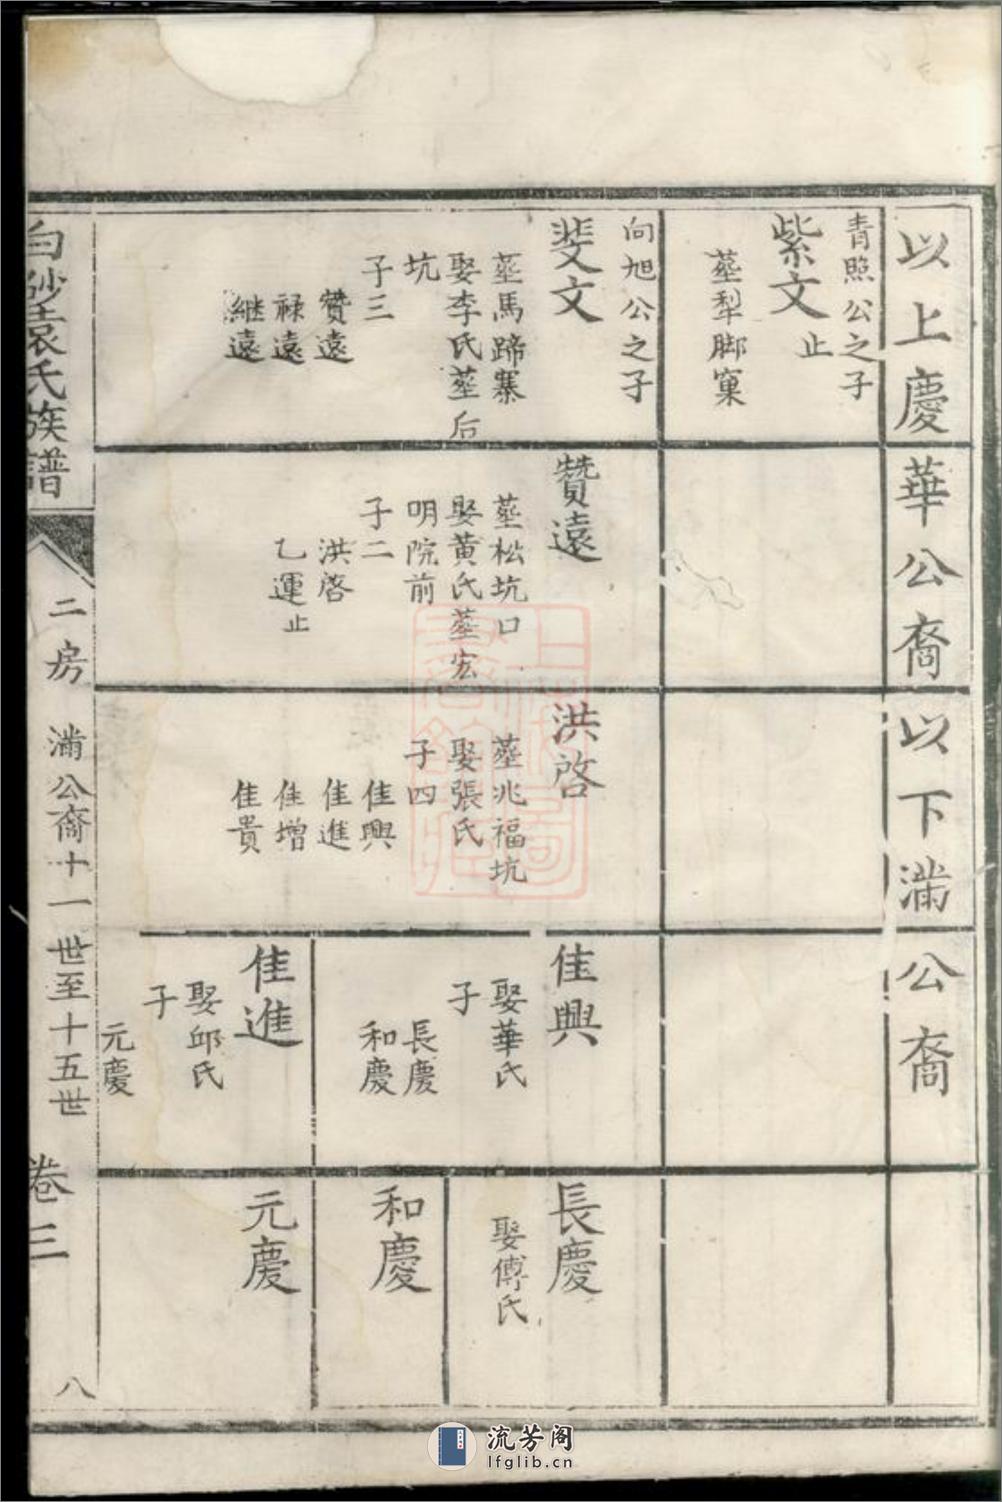 以上慶華公裔以下滿公裔
青照公之子
紫文
止
塟犁脚窠
向旭公之子
斐文
塟馬蹄寨
娶李氏塟后
坑
子三
贊遠
禄遠
継遠
贊遠
塟松坑口
娶黄氏塟宏
明院前
子二
洪啓
乙運止
洪啓
塟兆福坑
娶張氏
子四
佳興
佳進
佳增
佳貴
佳興
娶華氏
子
長慶
和慶
佳進
娶邱氏
子
元慶
長慶
娶傅氏
和慶
元慶
白砂袁氏族譜
二房
滿公裔十一世至十五世
卷三
八
上海圖書館藏
流芳阁
lfglib.cn